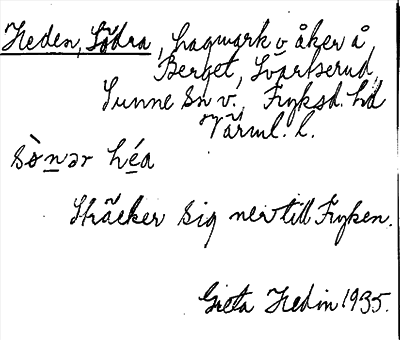 Heden, Södra, Hagmark o åker å
Berget, Svartserud,
Sunne sn v., Fryksd. hd
Värml. l.
sò̀nər héa
Sträcker sig ner till Fryken.
Greta Hedin 1935.